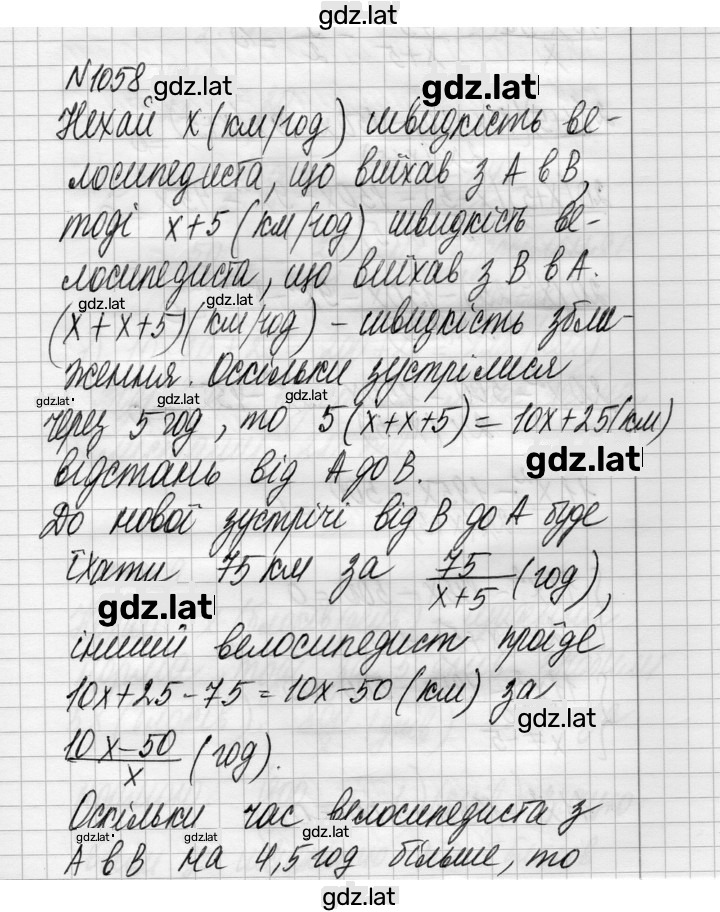 gdz.lat
N1058 gdz.lat gdz.lat
Нехай x (км/год) швидкість ве-
лосипедиста, що виїхав з A в B,
тоді x+5 (км/год) швидкість ве-
лосипедиста, що виїхав з B в A.
gdz.lat gdz.lat
(x+x+5)(км/год) - швидкість збли-
ження. Оскільки зустрілися
gdz.lat gdz.lat gdz.lat
через 5 год, то 5(x+x+5)=10x+25(км)
відстань від A до B. gdz.lat
До нової зустрічі від B до A буде
їхати 75 км за 75/(x+5) (год),
gdz.lat
інший велосипедист проїде
10x+25-75=10x-50 (км) за
gdz.lat
(10x-50)/x (год).
Оскільки час велосипедиста з
gdz.lat gdz.lat gdz.lat
A в B на 4,5 год більше, то
gdz.lat